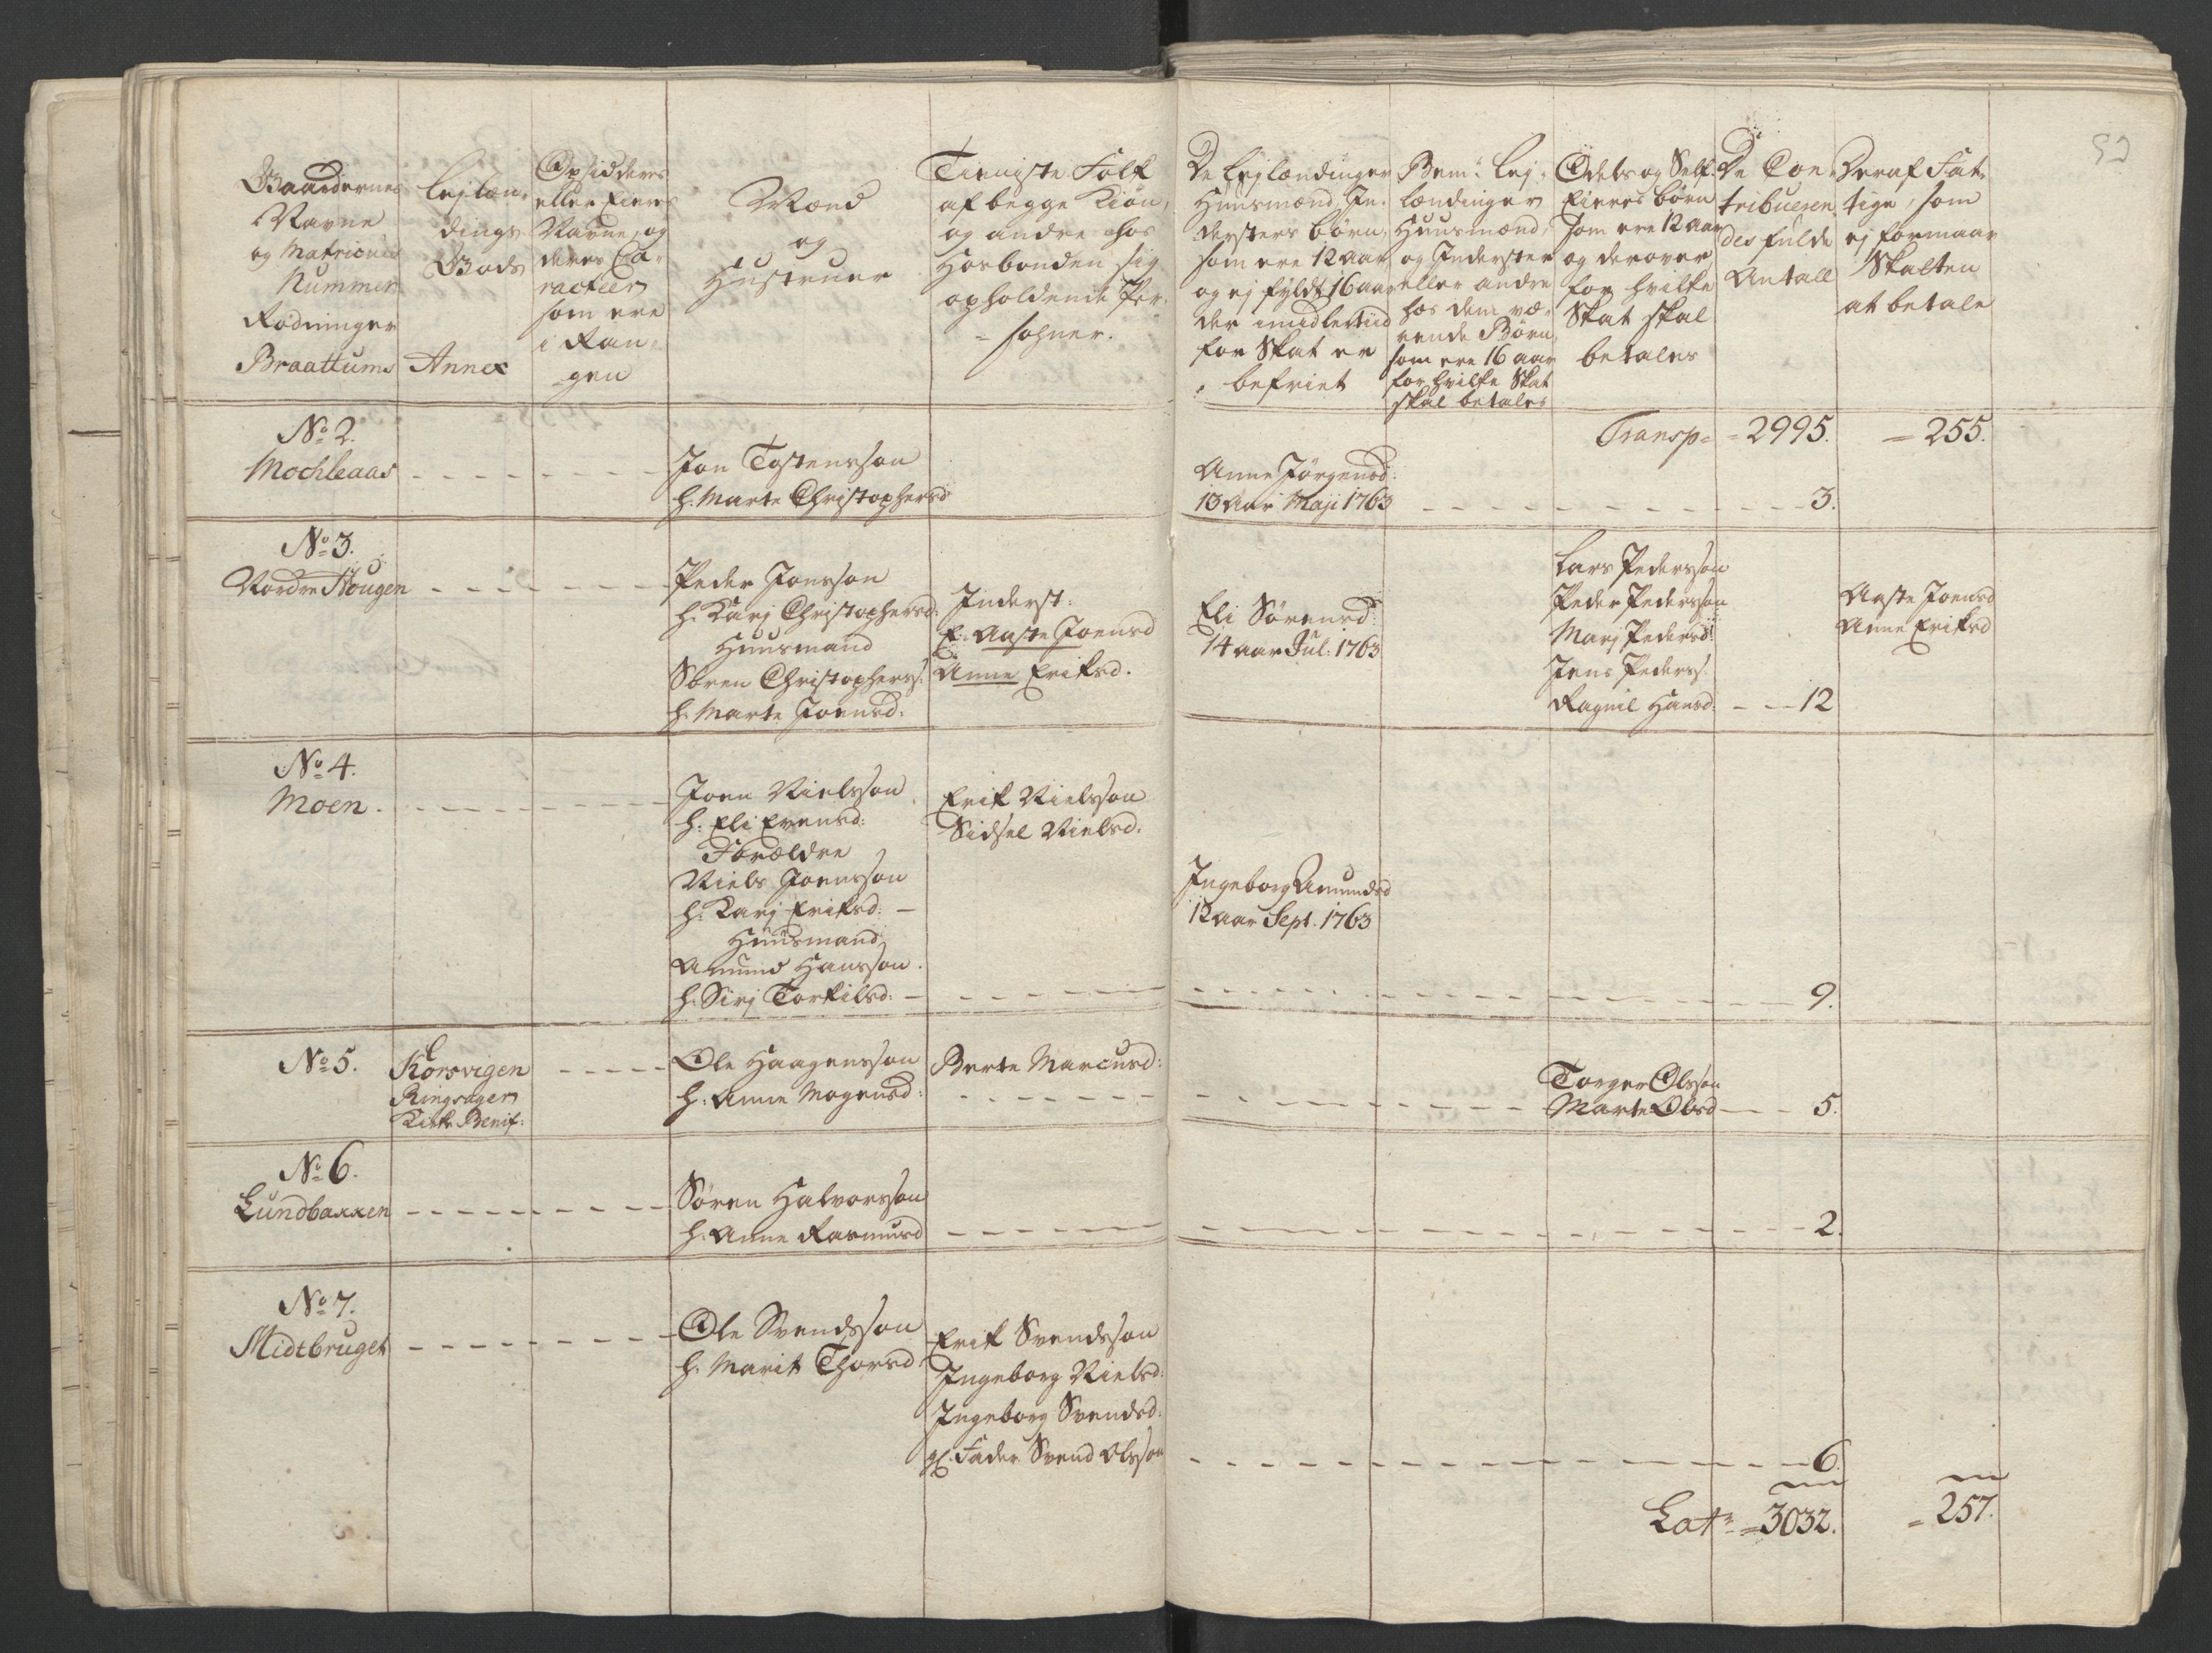 Gaardernes
Navne
og Matriculs
Nummer
Rodninger
Braattums
Lejlæn-
dings
Gods
Annex
Opsidderes
eller Eieres
Navne, og
deres Ca-
racteer
som ere
i Ran-
gen
Mænd
og
Hustruer
Tieniste Folk
af begge Kiøn,
og andre hos
Hosbonden sig
opholdende Per-
sohner.
De Lejlændinger
Huusmænd, In-
dersters børn,
som ere 12 aar
og ej fyldt 16 aar
der imidlertiid
for Skat er
befriet
Bem: Lej-
lændinger
Huusmænd,
og Inderster
eller andre
hos dem væ-
rende Børn,
som ere 16 aar
for hvilke Skat
skal betales
Odels og Self-
Eieres børn
som ere 12 aar
og derover
for hvilke
Skat skal
betales
De Con-
tribueren-
des fulde
Antall
Deraf Fat-
tige, som
ej formaar
Skatten
at betale
Transp = 2995. = 255.
No 2.
Mochleaas
Jon Tostensson
h. Marte Christophersd
Anne Jørgensd:
13 Aar Maji 1763
3.
No 3.
Nordre Hougen
Peder Jonsson
h. Karj Christophersd:
Huusmand
Sören Christophers:
h. Marte Joensd:
Inderst:
E. Aaste Joensd
Anne Eriksd.
Eli Sörensd:
14 aar Jul: 1763
Lars Pedersson
Peder Pedersson
Marj Pedersd:
Jens Peders:
Ragnil Hansd:
12
Aaste Joensd
Anne Eriksd
No 4.
Moen.
Joen Nielsson
h: Eli Evensd:
Forældre
Niels Joensson
h: Karj Eriksd:
Huusmand
Amund Hansson.
h: Sirj Torkilsd:
Erik Nielsson
Sidsel Nielsd:
Ingeborg Amundsd
12 aar Sept. 1763
9.
No 5.
Korsvigen
Ringsager
Kirke Benif:
Ole Haagensson
h: Anne Mogensd:
Berte Marcusd:
Torger Olsson
Marte Olsd
5.
No 6.
Lundbaxxen
Sören Halvorsson
h. Anne Rasmusd
2.
No 7.
Midtbruget
Ole Svendsson
h. Marit Thorsd
Erik Svendsson
Ingeborg Nielsd:
Ingeborg Svendsd:
gl. Fader Svend Olsson
6.
Lat = 3032. = 257.